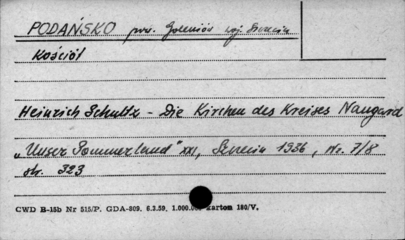 PODAŃSKO pow. Goleniów woj. Szczecin
Kościół
Heinrich Schultz - Die Kirchen des Kreises Naugard
„Unser Pommerland" XXI, Szczecin 1936, Nr. 7/8
str. 323
CWD B-15b Nr 515/P. GDA-809. 6.3.59. 1.000.000 karton 180/V.